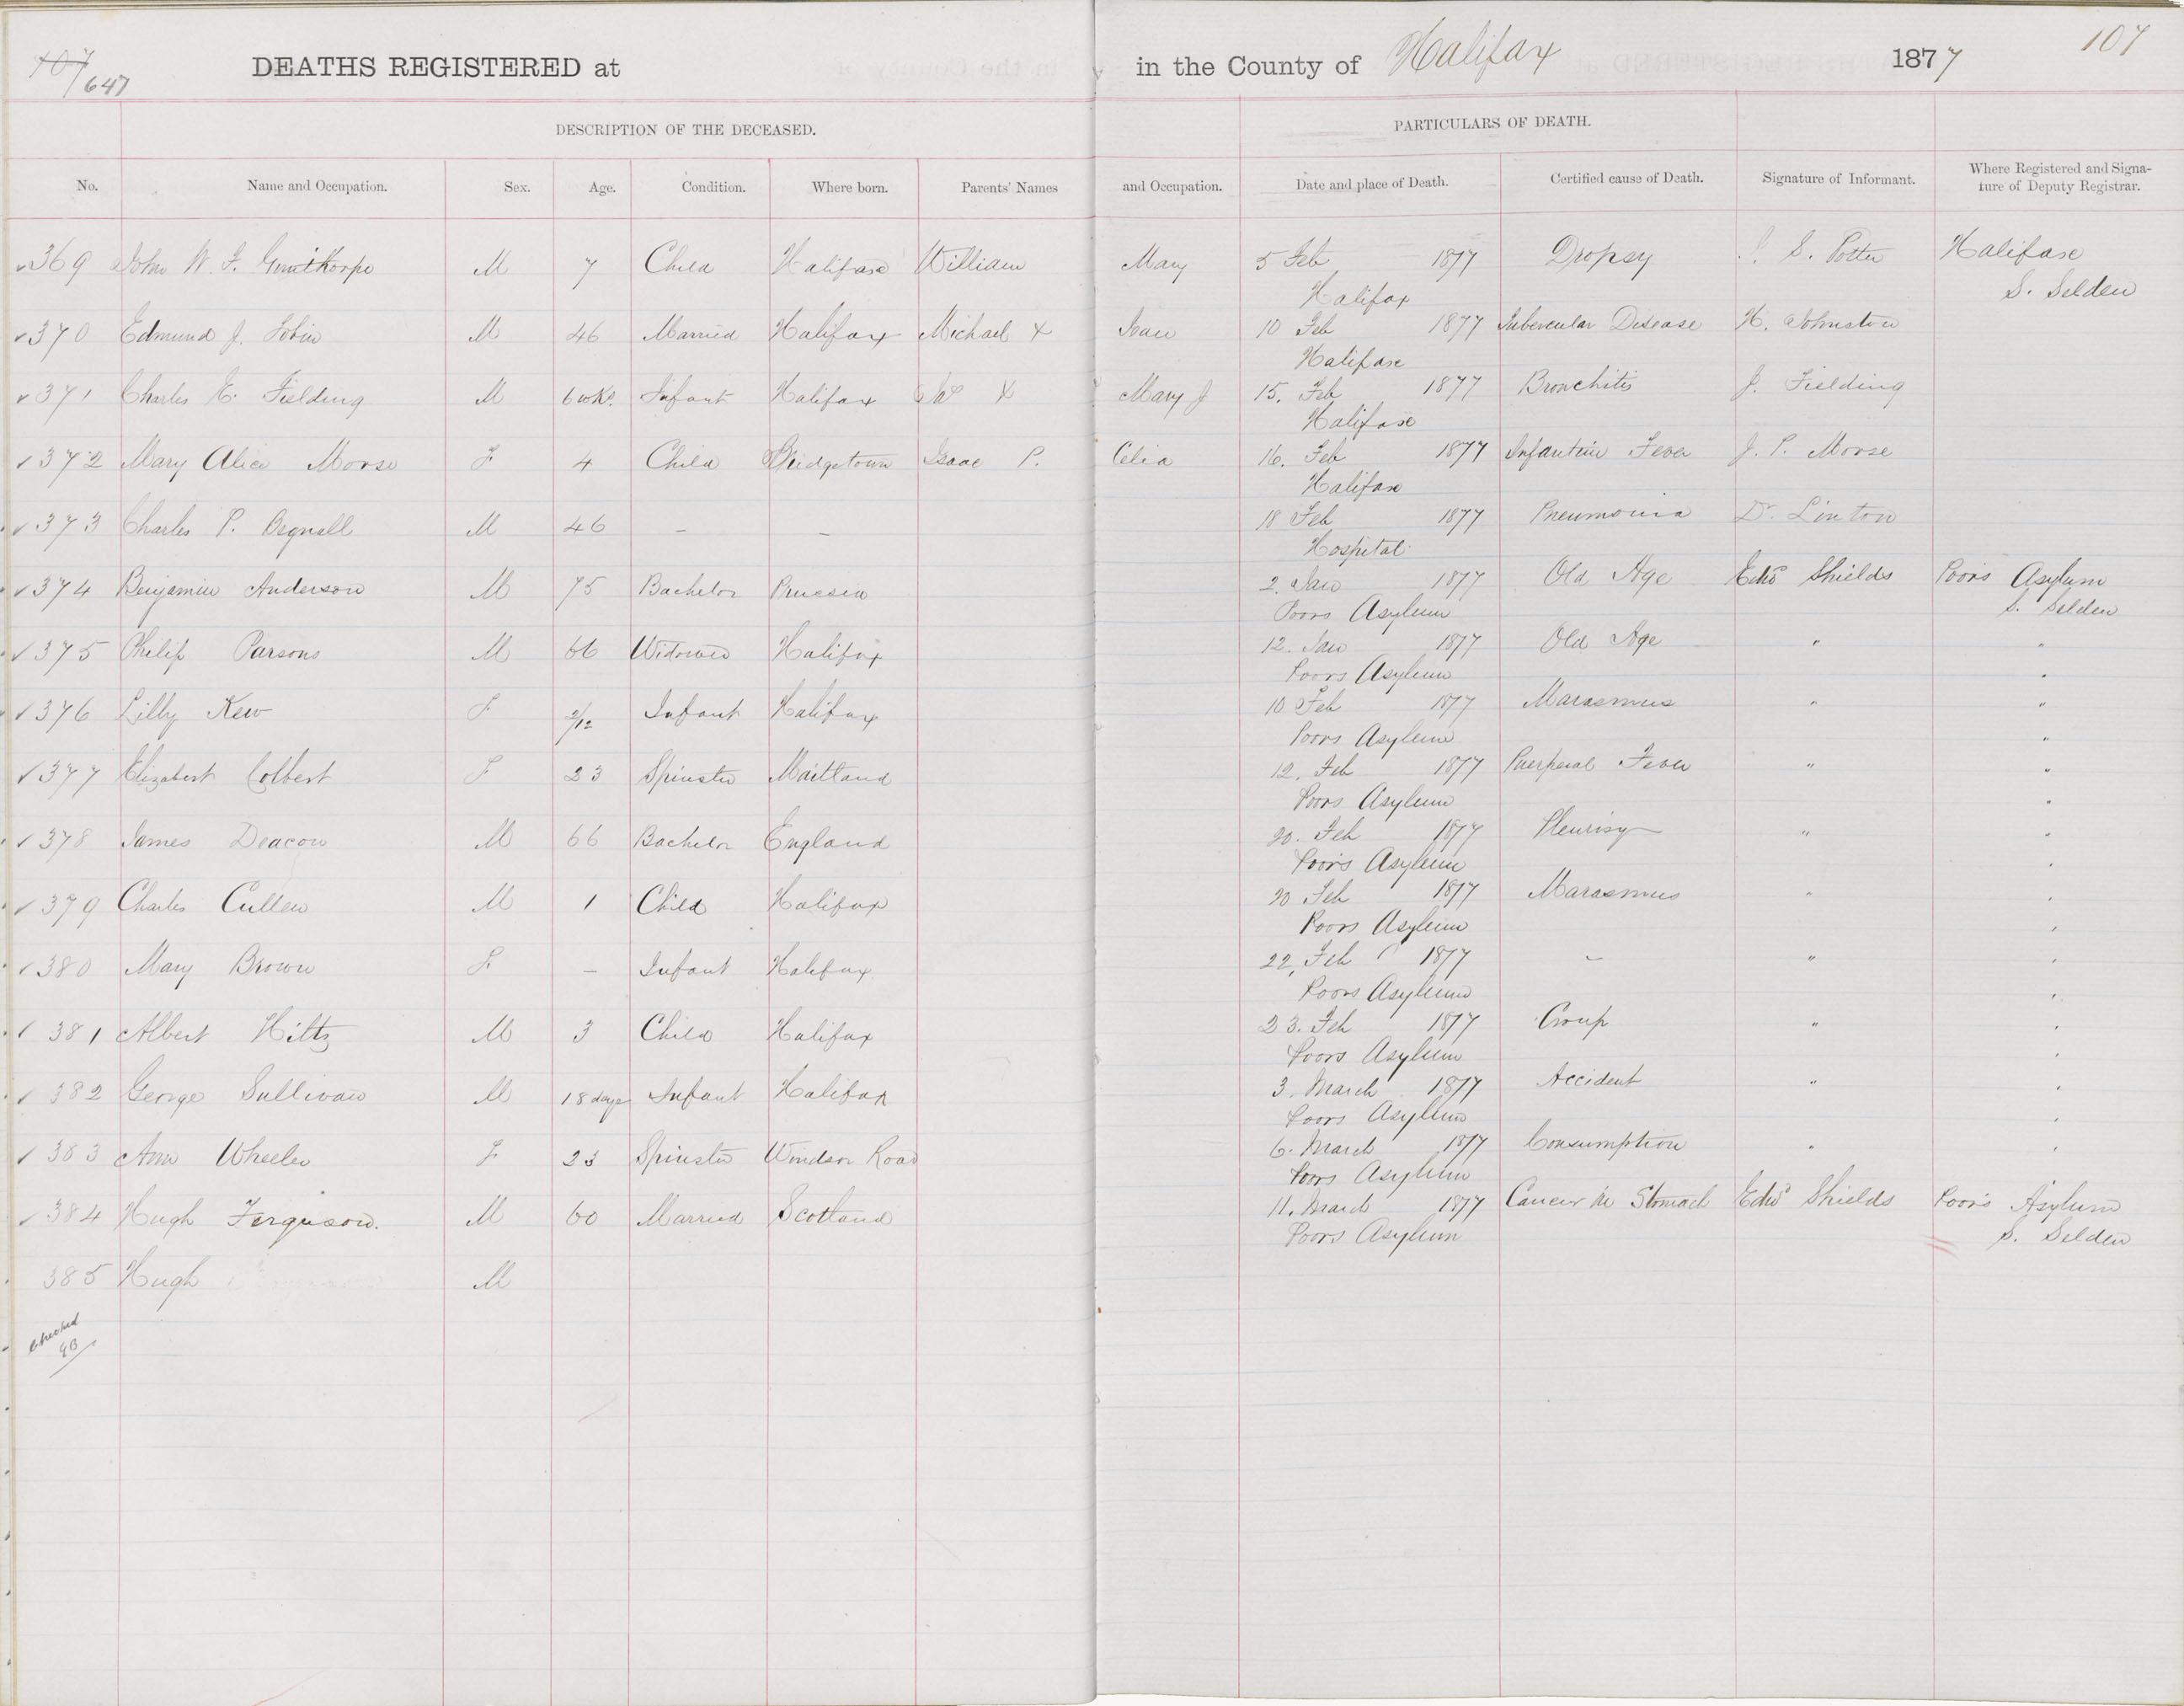 107 647 DEATHS REGISTERED at in the County of Halifax 1877 107
DESCRIPTION OF THE DECEASED. PARTICULARS OF DEATH.
No. Name and Occupation. Sex. Age. Condition. Where born. Parents' Names and Occupation. Date and place of Death. Certified cause of Death. Signature of Informant. Where Registered and Signature of Deputy Registrar.
369 John W. F. M 7 Child Halifax William Mary 5 Feb 1877 Dropsy S. Potter Halifax
Halifax S. Selden
370 Edmund J. Tobin M 46 Married Halifax Michael X 10 Feb 1877 Tubercular Disease H. Johnston
Halifax
371 Charles E. Fielding M 6 wks. Infant Halifax X Mary J 15. Feb 1877 Bronchitis J. Fielding
Halifax
372 Mary Alice Morse F 4 Child Bridgetown Isaac P. Celia 16. Feb 1877 Fever J. P. Morse
Halifax
373 Charles P. Begnell M 46 – – 18 Feb 1877 Pneumonia Dr. Linton
Hospital
374 Benjamin Anderson M 75 Bachelor 2. Jan 1877 Old Age Edwd Shields Poors Asylum
Poors Asylum S. Selden
375 Philip Parsons M 66 Widower Halifax 12. Jan 1877 Old Age " "
Poors Asylum "
376 Lilly Kew F 2/12 Infant Halifax 10 Feb 1877 Marasmus " "
Poors Asylum "
377 Elizabeth Colbert F 23 Spinster Maitland 12. Feb 1877 Puerperal Fever " "
Poors Asylum "
378 James Deacon M 66 Bachelor England 20. Feb 1877 Pleurisy " "
Poors Asylum "
379 Charles Cullen M 1 Child Halifax 20 Feb 1877 Marasmus " "
Poors Asylum "
380 Mary Brown F – Infant Halifax 22, Feb 1877 – " "
Poors Asylum "
381 Albert Hiltz M 3 Child Halifax 23. Feb 1877 Croup " "
Poors Asylum "
382 George Sullivan M 18 days Infant Halifax 3. March 1877 Accident " "
Poors Asylum "
383 Ann Wheeler F 23 Spinster Windsor Road 6. March 1877 Consumption " "
Poors Asylum
384 Hugh Ferguson. M 60 Married Scotland 11. March 1877 Cancer in Stomach Edwd Shields Poors Asylum
Poors Asylum S. Selden
385 Hugh M
Checked